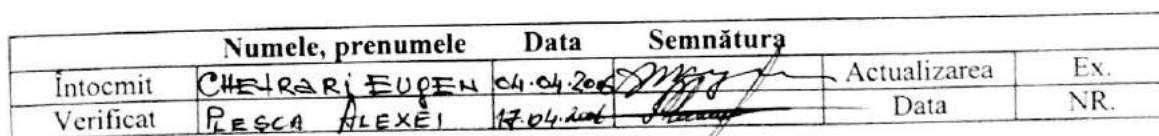 Numele, prenumele Data Semnătura
Întocmit CHETRARI EUGEN 04.04.2006 Actualizarea Ex.
Verificat PLEȘCA ALEXEI 17.04. Data NR.